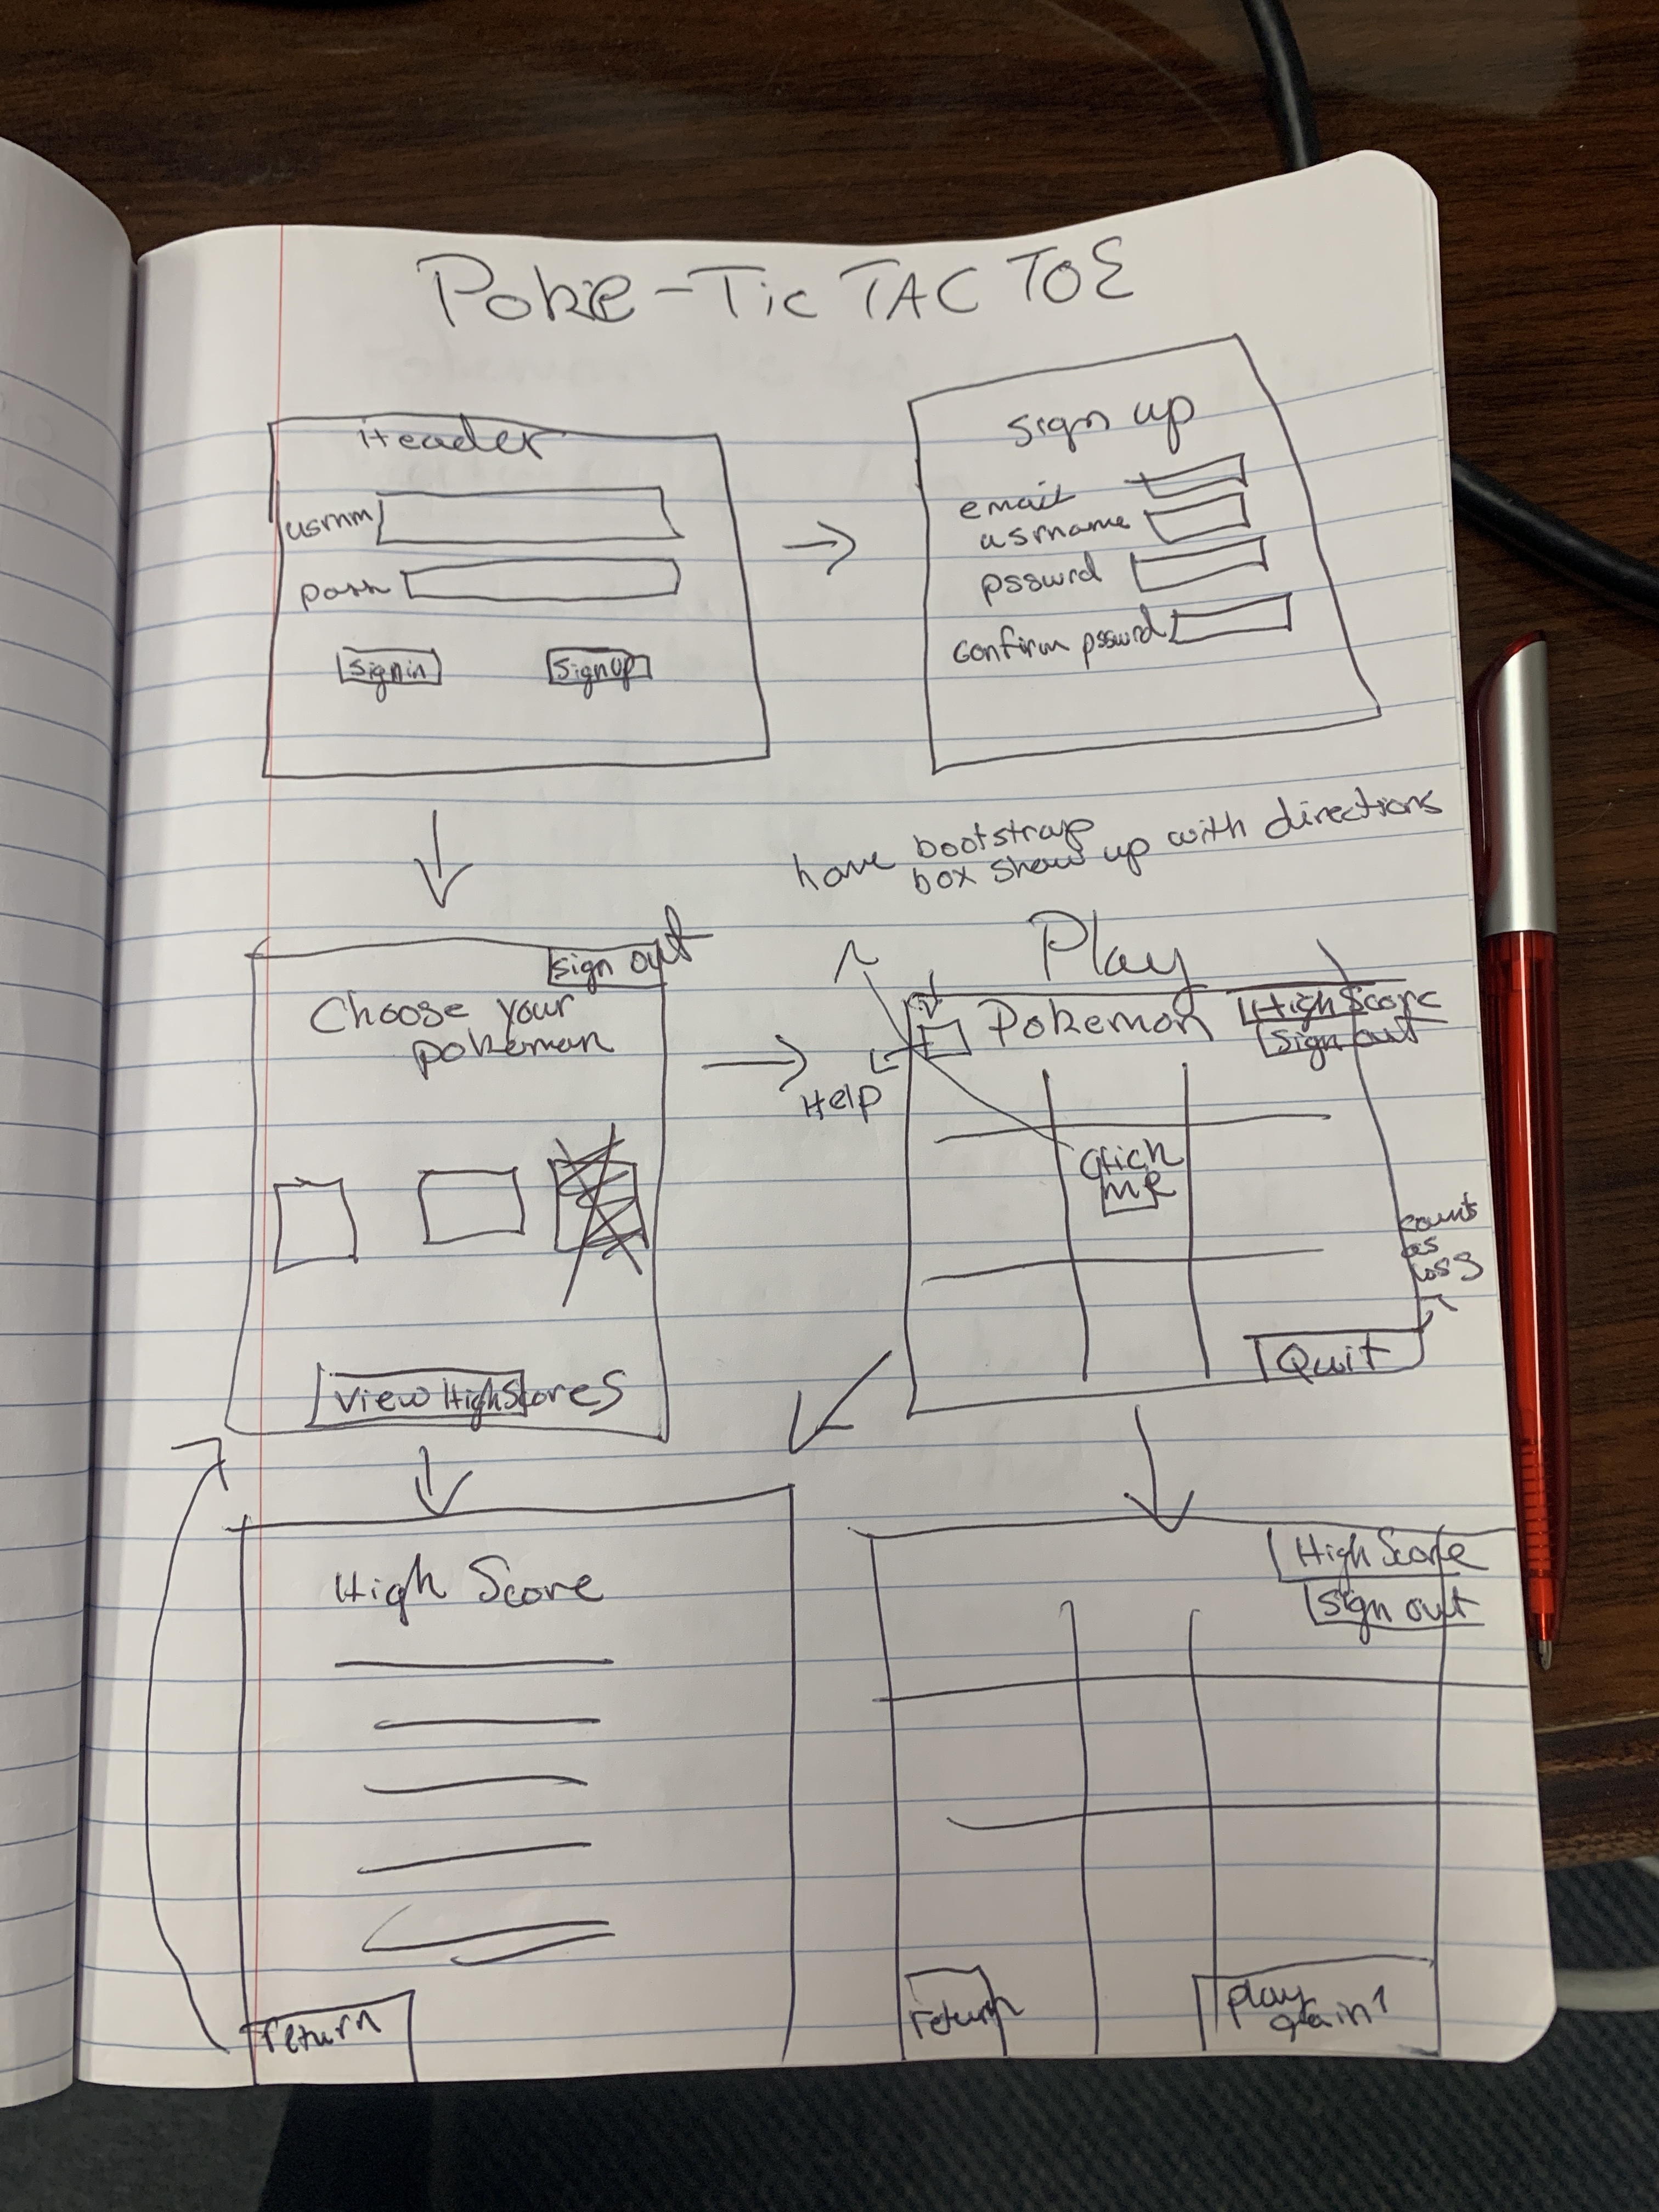 Poke-Tic TAC TOE
Header
usrnm
pass
Signin
Signup
Sign up
email
usrname
psswrd
confirm psswrd
have bootstrap
box show up with directions
sign out
Choose your
pokemon
View HighScores
Help
Play
Pokemon
High Score
Sign out
Click
me
counts
as
loss
Quit
High Score
return
High Score
sign out
return
play
again?